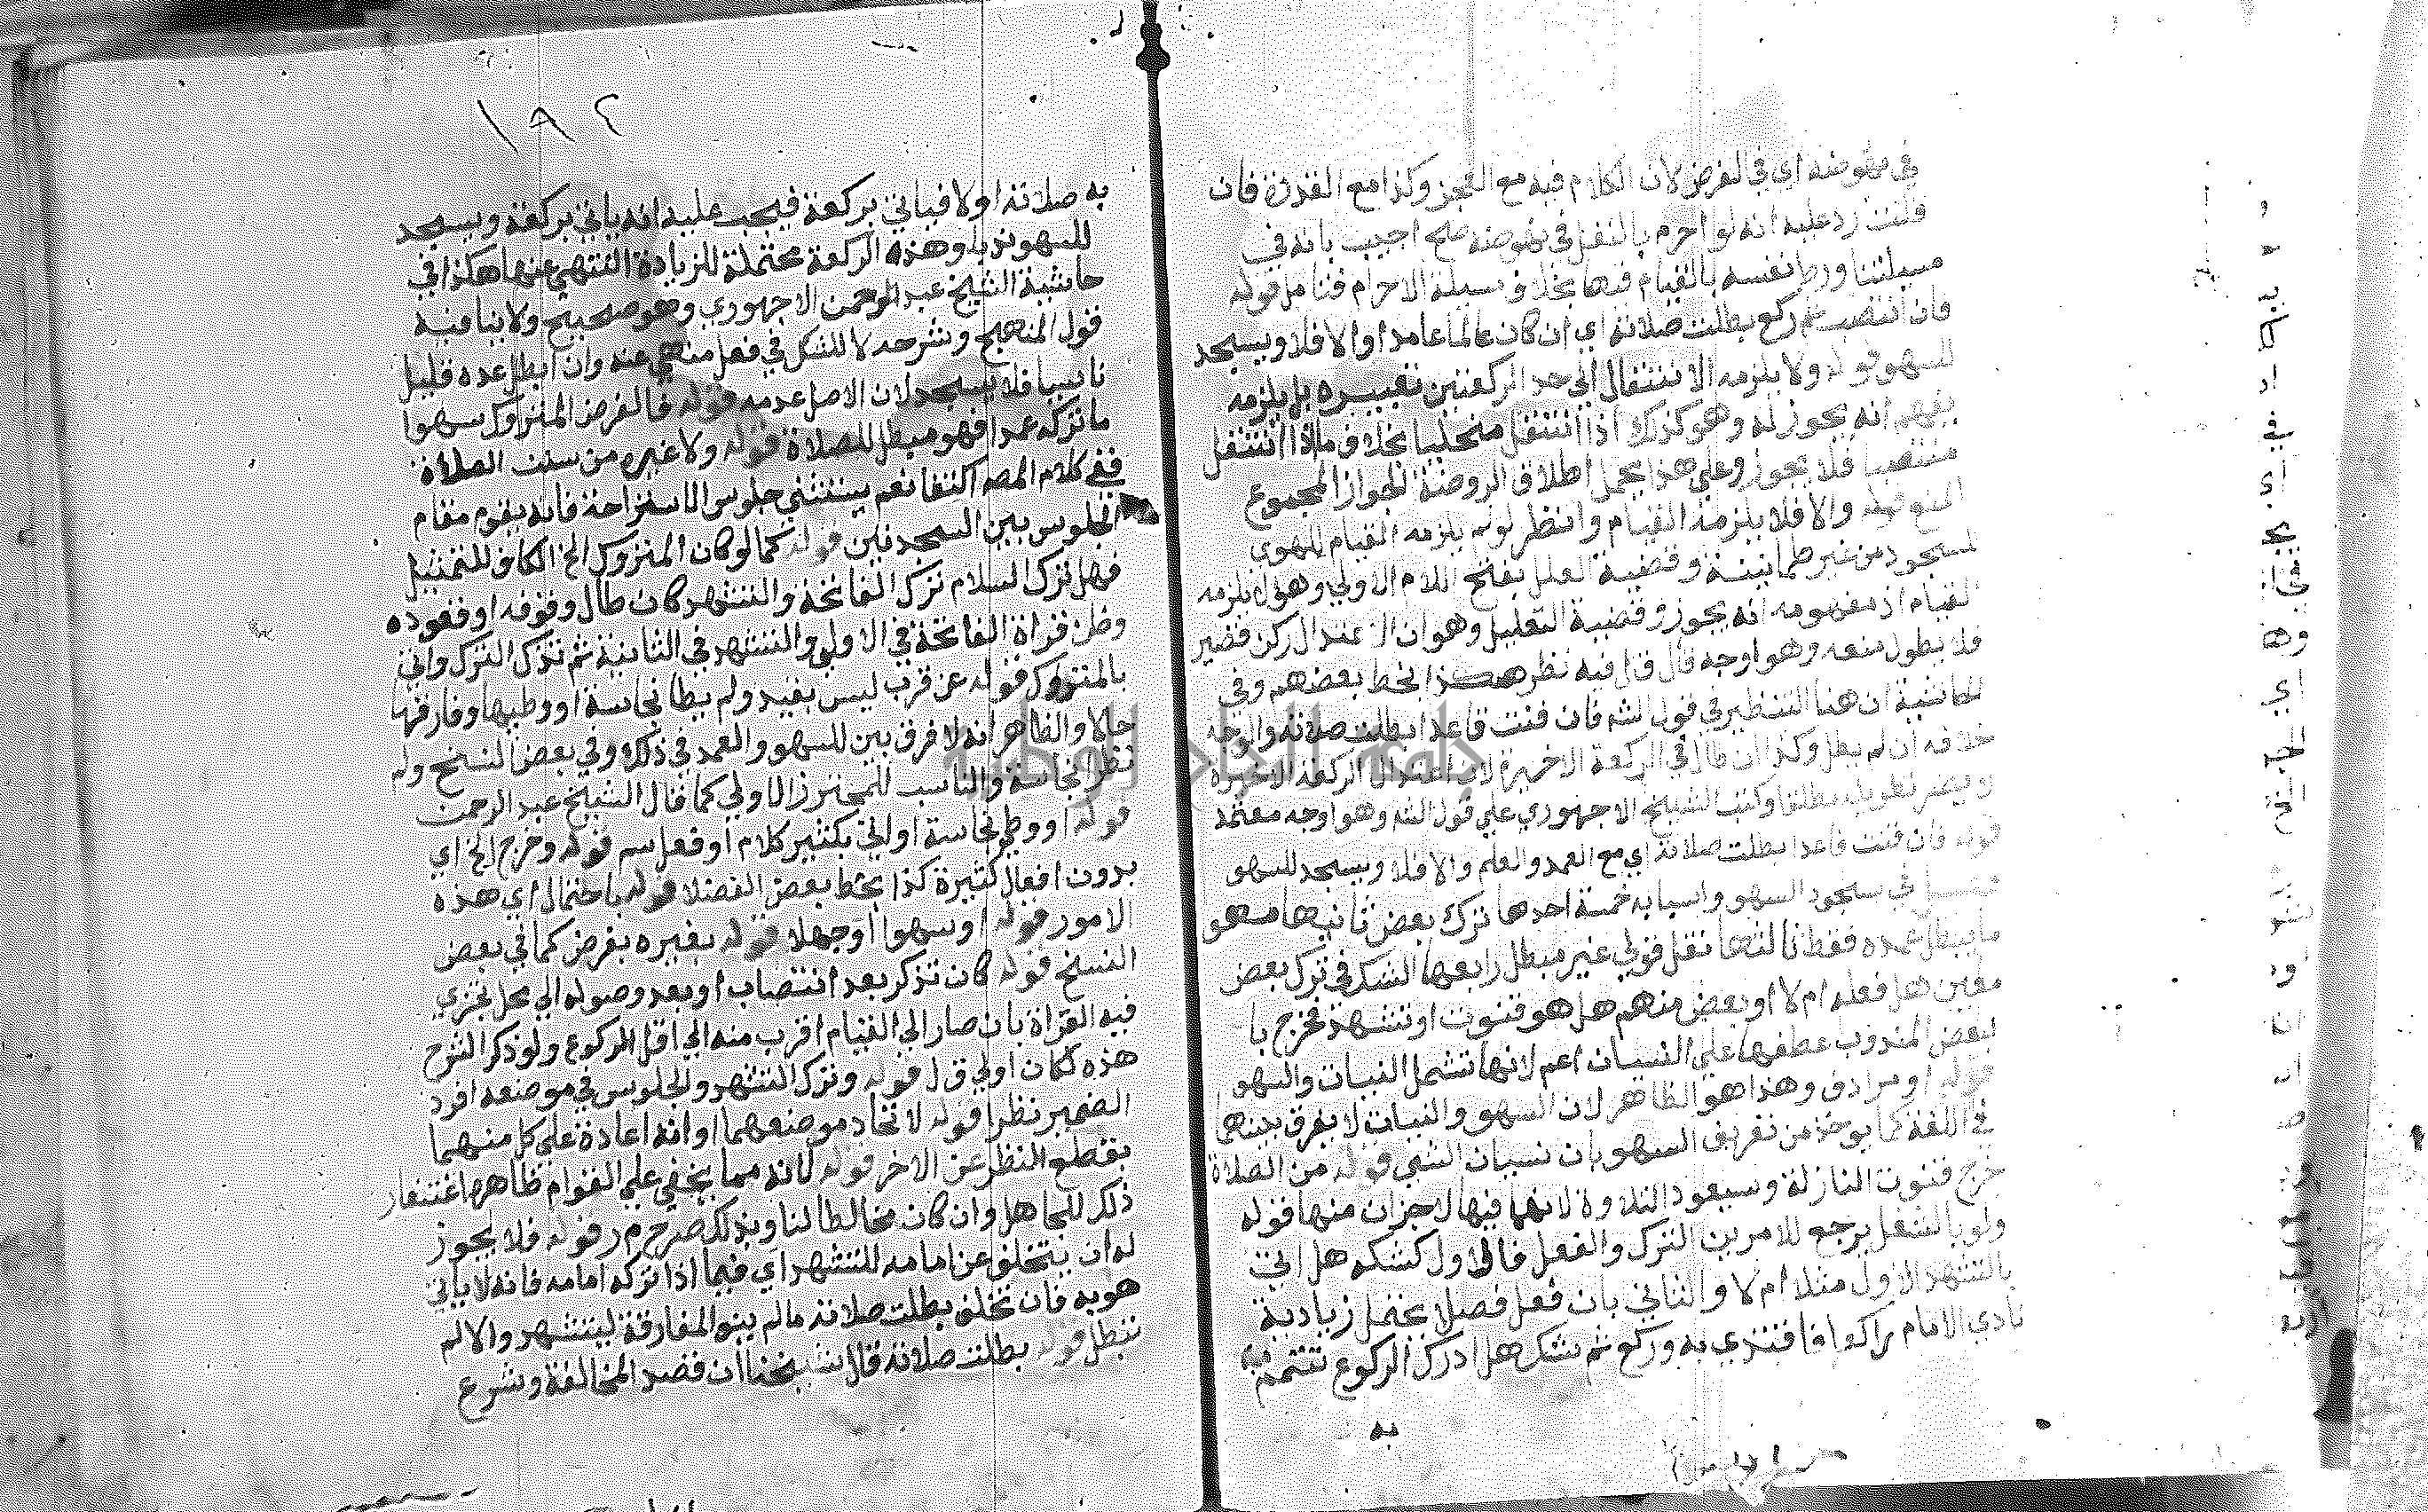 في نهوضه اي في الفرض لان الكلام فيه مع العجز وكذا مع القدرة فان
قلت رد عليه انه لو احرم بالنفل في نهوضه صح اجيب بانه في
مسيلتنا ورط نفسه بالقيام فيها بخلاف مسيلة الاحرام فتامل قوله
فان انتصب ثم ركع بطلت صلاته اي ان كان عالما عامدا والا فلا ويسجد
للسهو قوله ولا يلزمه الانتقال الي حد الركعتين تعبيره بل يلزمه
يفهم انه يجوز له وهو كذلك اذا انتقل منحنيا بخلاف ما اذا انتقل
منتصبا فلا يجوز وعلي هذا يحمل اطلاق الروضة الجواز المجموع
المنع قوله والا فلا يلزمه القيام وانظر لو لم يلزمه القيام للهوي
للسجود من غير طمانينة وقضية العلل بفتح اللام الاولي وهو
القيام اذ مفهومه انه يجوز وقضية التعليل وهو ان الاعتدال ركن قصير
فلا يطول منعه وهو اوجه قال ق ل فيه نظر هكذا بخط بعضهم وفي
الحاشية ان هنا التنظير في قول الشه فان قنت قاعدا بطلت صلاته والوجه
خلافه ان لم يطل وكذا ان طال في الركعة الاخيرة لان اعتدال الركعة الاخيرة
تطويله مطلقا وكتب الشيخ الاجهوري علي قول الشه وهو اوجه معتمد
قوله فان قنت قاعدا بطلت صلاته اي مع العمد والعلم والا فلا ويسجد للسهو
فصل في سجود السهو واسبابه خمسة احدها ترك بعض ثانيها سهو
ما يبطل عمده فقط ثالثها نقل قولي غير مبطل رابعها الشك في ترك بعض
معين هل فعله ام لا او بعض منهم هل هو قنوت او تشهد فخرج با
لبعض المندوب عطفها علي النسيان اعم لانها تشمل النسيات والسهو
قوله او مرادف وهذا هو الظاهر لان السهو والنسيات لا يفرق بينهما
في اللغة كما يوخذ من تعريف السهو بان نسيان الشي قوله من الصلاة
خرج قنوت النازلة وسجود التلاوة لانهما فيها لا جزان منها قوله
ولو بالشك يرجع للامرين الترك والفعل فالاول كشكه هل اتي
بالتشهد الاول مثلا ام لا والثاني بان فعل فصلا يحتمل زيادية
نادي الامام راكعا فاقتدي به وركع ثم شك هل ادرك الركوع
به
١٩٢
به صلاته اولا فياتي بركعة فيجب عليه انه ياتي بركعة ويسجد
للسهو ندبا وهذه الركعة محتملة للزيادة انتهي عنها هكذا في
حاشية الشيخ عبد الرحمن الاجهوري وهو صحيح ولا ينافيه
قول المنهج وشرحه لا للشك في فعل منهي عنه وان ابطل عمده قليل
ناسيا فلا يسجد لان الاصل عدمه قوله فالفرض المتروك سهوا
ما تركه عمدا فهو مبطل للصلاة قوله ولا غيره من سنن الصلاة
ففي كلام المصه اكتفا نعم يستثني جلوس الاستراحة فانه يقوم مقام
الجلوس بين السجدتين قوله كما لو كان المتروك الخ الكاف للتمثيل
فهل ترك السلام ترك الفاتحة والتشهد كان طال وقوفه او قعوده
وظن قراة الفاتحة في الاولي والتشهد في الثانية ثم تذكر الترك واتي
بالمتروك قوله عن قرب ليس بقيد ولم يطا نجاسة او وطيها وفارقها
حالا والظاهر انه لا فرق بين السهو والعمد في ذلك وفي بعض النسخ ولم
تظر نجاسة والناسب للمحترز الاولي كما قال الشيخ عبد الرحمن
قوله او وطي نجاسة او اتي بكثير كلام او فعل سم قوله وخرج الخ اي
بدون افعال كثيرة كذا بخط بعض الفضلا قوله باحتمال اي هذه
الامور قوله او سهوا او جهلا قوله بغيره بفرض كما في بعض
النسخ قوله كان تذكر بعد انتصاب او بعد وصوله الي محل تجزي
فيه القراة بان صار الي القيام اقرب منه الي اقل الركوع ولو ذكر الشرح
هذه لكان اولي ق ل قوله وترك التشهد والجلوس في موضعه افرد
الضمير نظرا قوله لاتحاد موضعهما او انه اعادة علي كل منهما
بقطع النظر عن الاخر قوله لانه مما يخفي علي العوام ظاهرها اغتفار
ذلك للجاهل وان كان مخالطا لنا وبذلك صرح م ر قوله فلا يجوز
له ان يتخلف عن امامه للتشهد اي فيما اذا تركه امامه فانه لا ياتي
هو به فان تخلف بطلت صلاته ما لم ينو المفارقة ليتشهد والا لم
تبطل قوله بطلت صلاته قال شيخنا ان قصد المخالفة وشرع